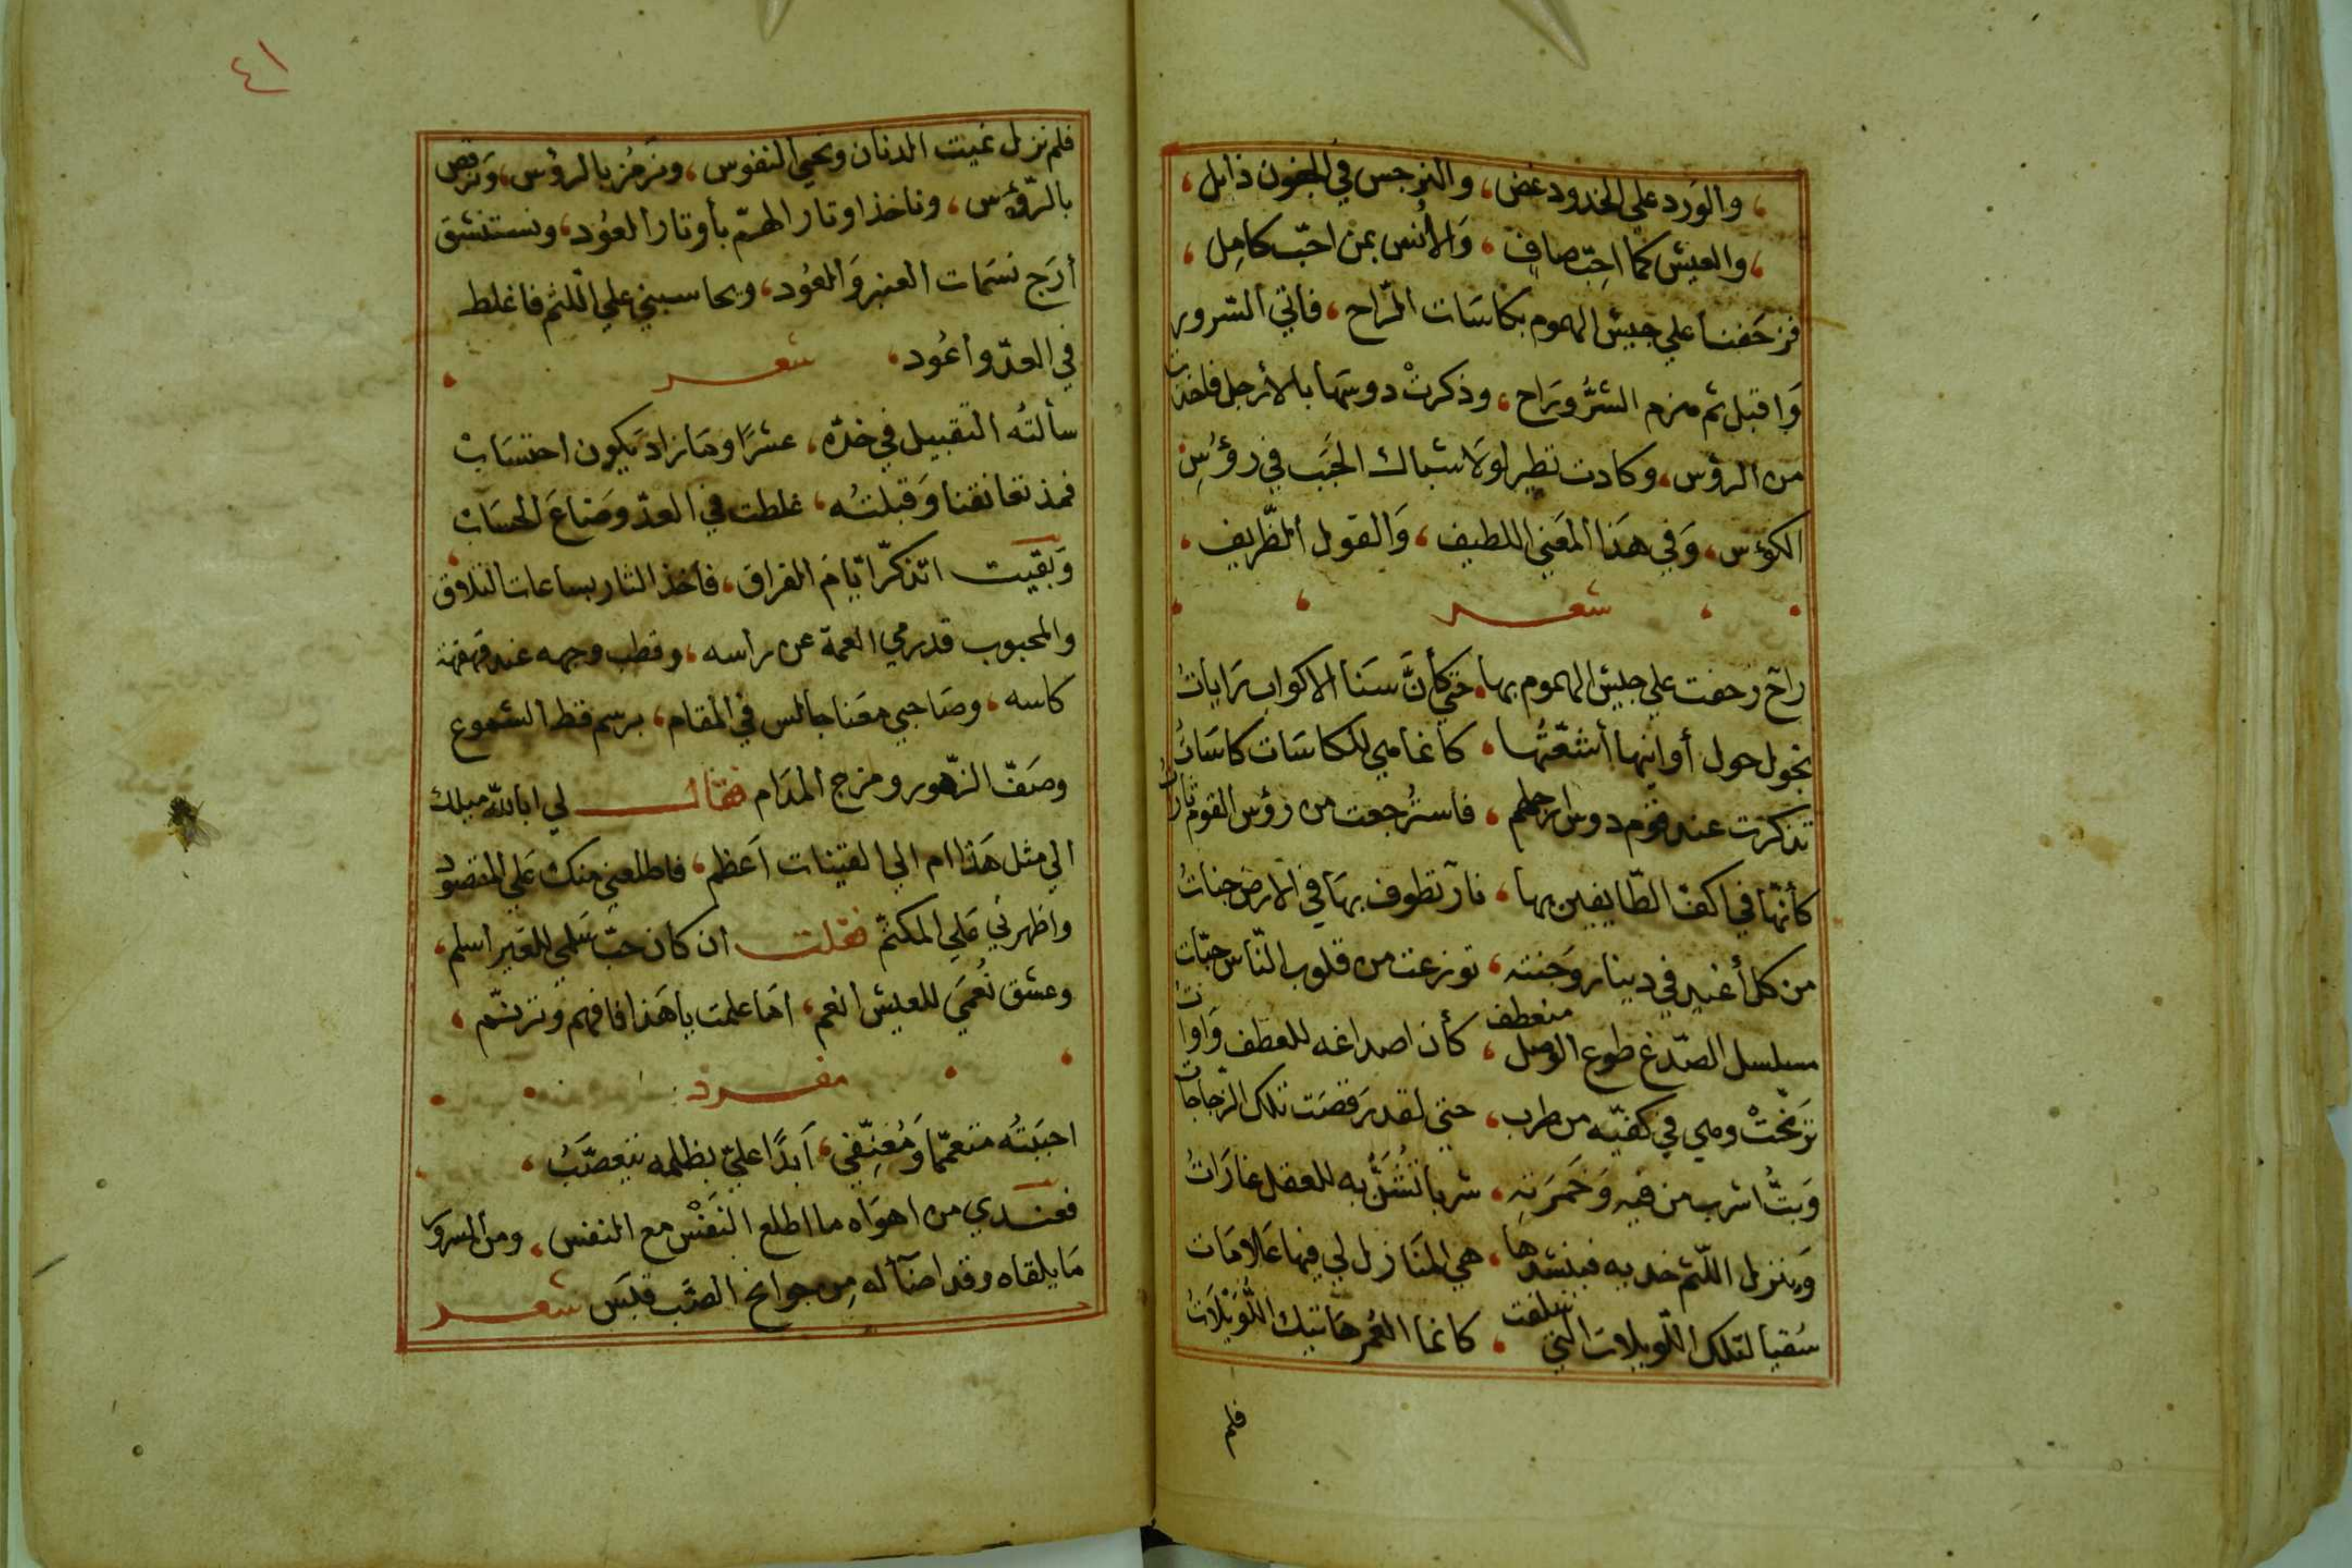 ، والوَرد علي الخدود غض ، والنرجس في الجفون ذابل ،
، والعيش كما احِبّ صافٍ ، وَالأُنس بمن احبّ كامِل ،
فزحَفنا علي جيش الهموم بكاسَات الرّاح ، فأتي السّرور
وَاقبل ثم هزم الشرُّ ورَاح ، وذكرتْ دوسَها بالأرجل فاخذت
من الرؤس ، وكادت تطير لولا شباك الحَبَب في رؤسِ
الكؤس ، وَفي هذا المعَني اللطيف ، وَالقول الظّريف ،
شعر
راحٌ زحفت علي جيش الهموم بها ، حتي كأنَّ سَنَا الاكواب رَايات
تجول حول أوانيها أشعّتُها ، كأنما هي للكاسَات كاسَاتُ
تذكرت عند قوم دوس ارجلهم ، فاسترُجعت من رؤس القوم ثارات
كأنّها في اكفّ الطّايفين بها ، نارٌ تطوف بهَا في الارض جناتُ
من كل أغيد في دينار وَجنته ، توزعت من قلوب النّاس حبّات
مسلسل الصّدغ طوع الوصل منعطف ، كأن اصداغه للعطف وَاوات
ترَنّحَتْ وهي في كفيّه من طرب ، حتي لقد رَقصَت تلك الزّجاجات
وَبتُّ اشرب من فيهِ وَخَمرَتِهِ ، شربا تُشَنُّ به للعقل غارَاتُ
وَينزل اللّثم خديه فينشدها ، هي المنَازل لي فيها عَلامَات
سُقيا لتلك اللّويلات التي سلفت ، كانما العُمر هَاتيك اللُّوَيْلَاتُ
فلم
٤١
فلم نزل نميت الدنان ونحيي النفوس ، ونَرمُز بالرؤس ، وَنرقص
بالرّؤس ، وناخذ اوتار الهمّ بأوتار العُود ، ونستنشق
أرَج نسَمات العنبر وَالعُود ، ويحاسبني علي اللثم فاغلط
في العدّ وأعُود ،
شعر
سألتُه التقبيل في خدّه ، عشرًا ومَا زاد يَكون احتسَابْ
فمذ تعانقنا وَقبلتُه ، غلطت في العدّ وضَاعَ الحسَابْ
وَبقيت اتذكّر ايّام الفراق ، فآخذ الثار بساعات التلاق
والمحبوب قد رمي العمة عن رأسه ، وقطب وجهه عند قهقهة
كاسه ، وصَاحبي معَنا جالس في المقام ، برسم قط الشموع
وصَفّ الزّهور ومزج المدَام فقال لي ابالله ميلك
الي مثل هَذا ام الي القينات اَعظم ، فاطلعني منك عَلي المقصود
واظهرني عَلي المكتم فقلت ان كان حبّ سَلمي للغير اسلم ،
وعشق نُعمَي للعيش انعم ، امَا علمت ياهَذا فافهم وترنّم ،
مفرد
احببَتُه متعمّما وَمُعنِّفي ، اَبدًا عليّ بظلمه يتعصَّبُ ،
فعندي من اهوَاه ما اطلع النفَسْ مع النفس ، ومن السرور
مَا يلقاه وقد اضآ له مِن جوانح الصَّب قبَس شعر